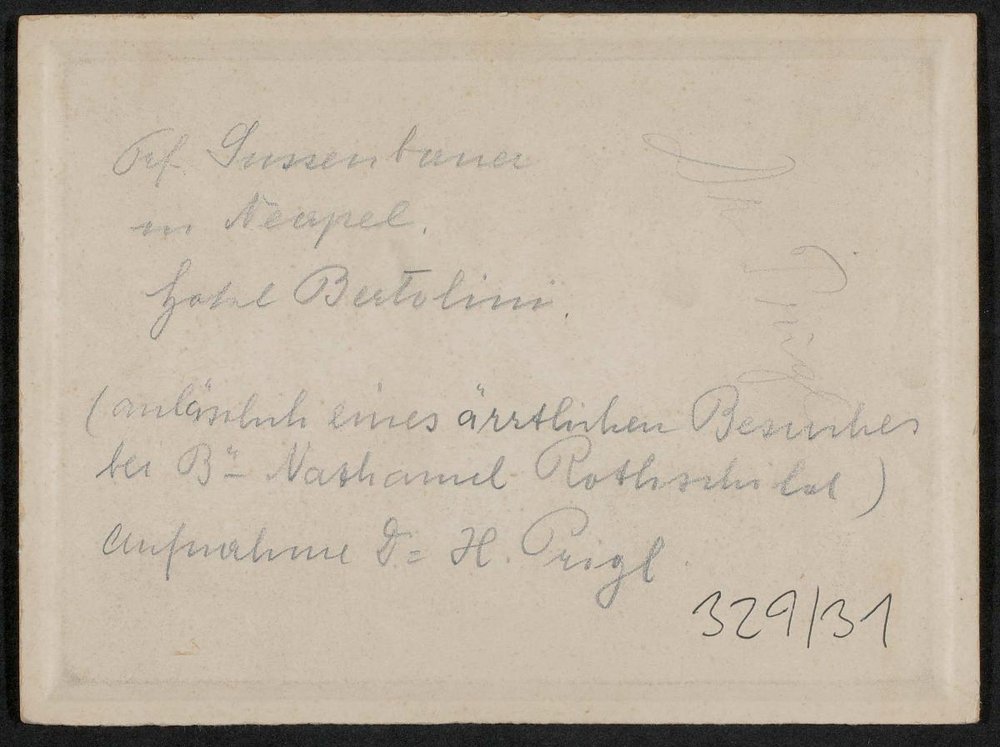 Prf. Gussenbauer
in Neapel.
Hotel Bertolini.
(anläßlich eines ärztlichen Besuches
bei Bⁿ Nathaniel Rothschild)
Aufnahme Dr H. Prigl
329/31